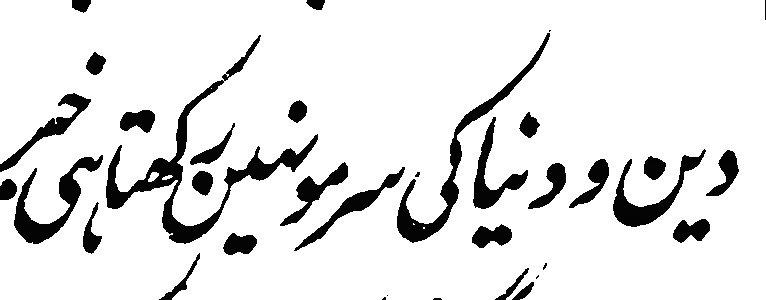 دین و دنیا کی سر مو نہین رکھتا ہی خبر